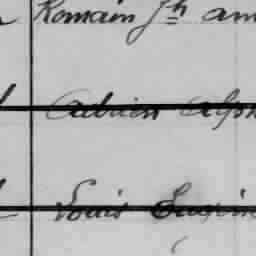 Romain Jh am
Adrien Alph
Louis Eugèn